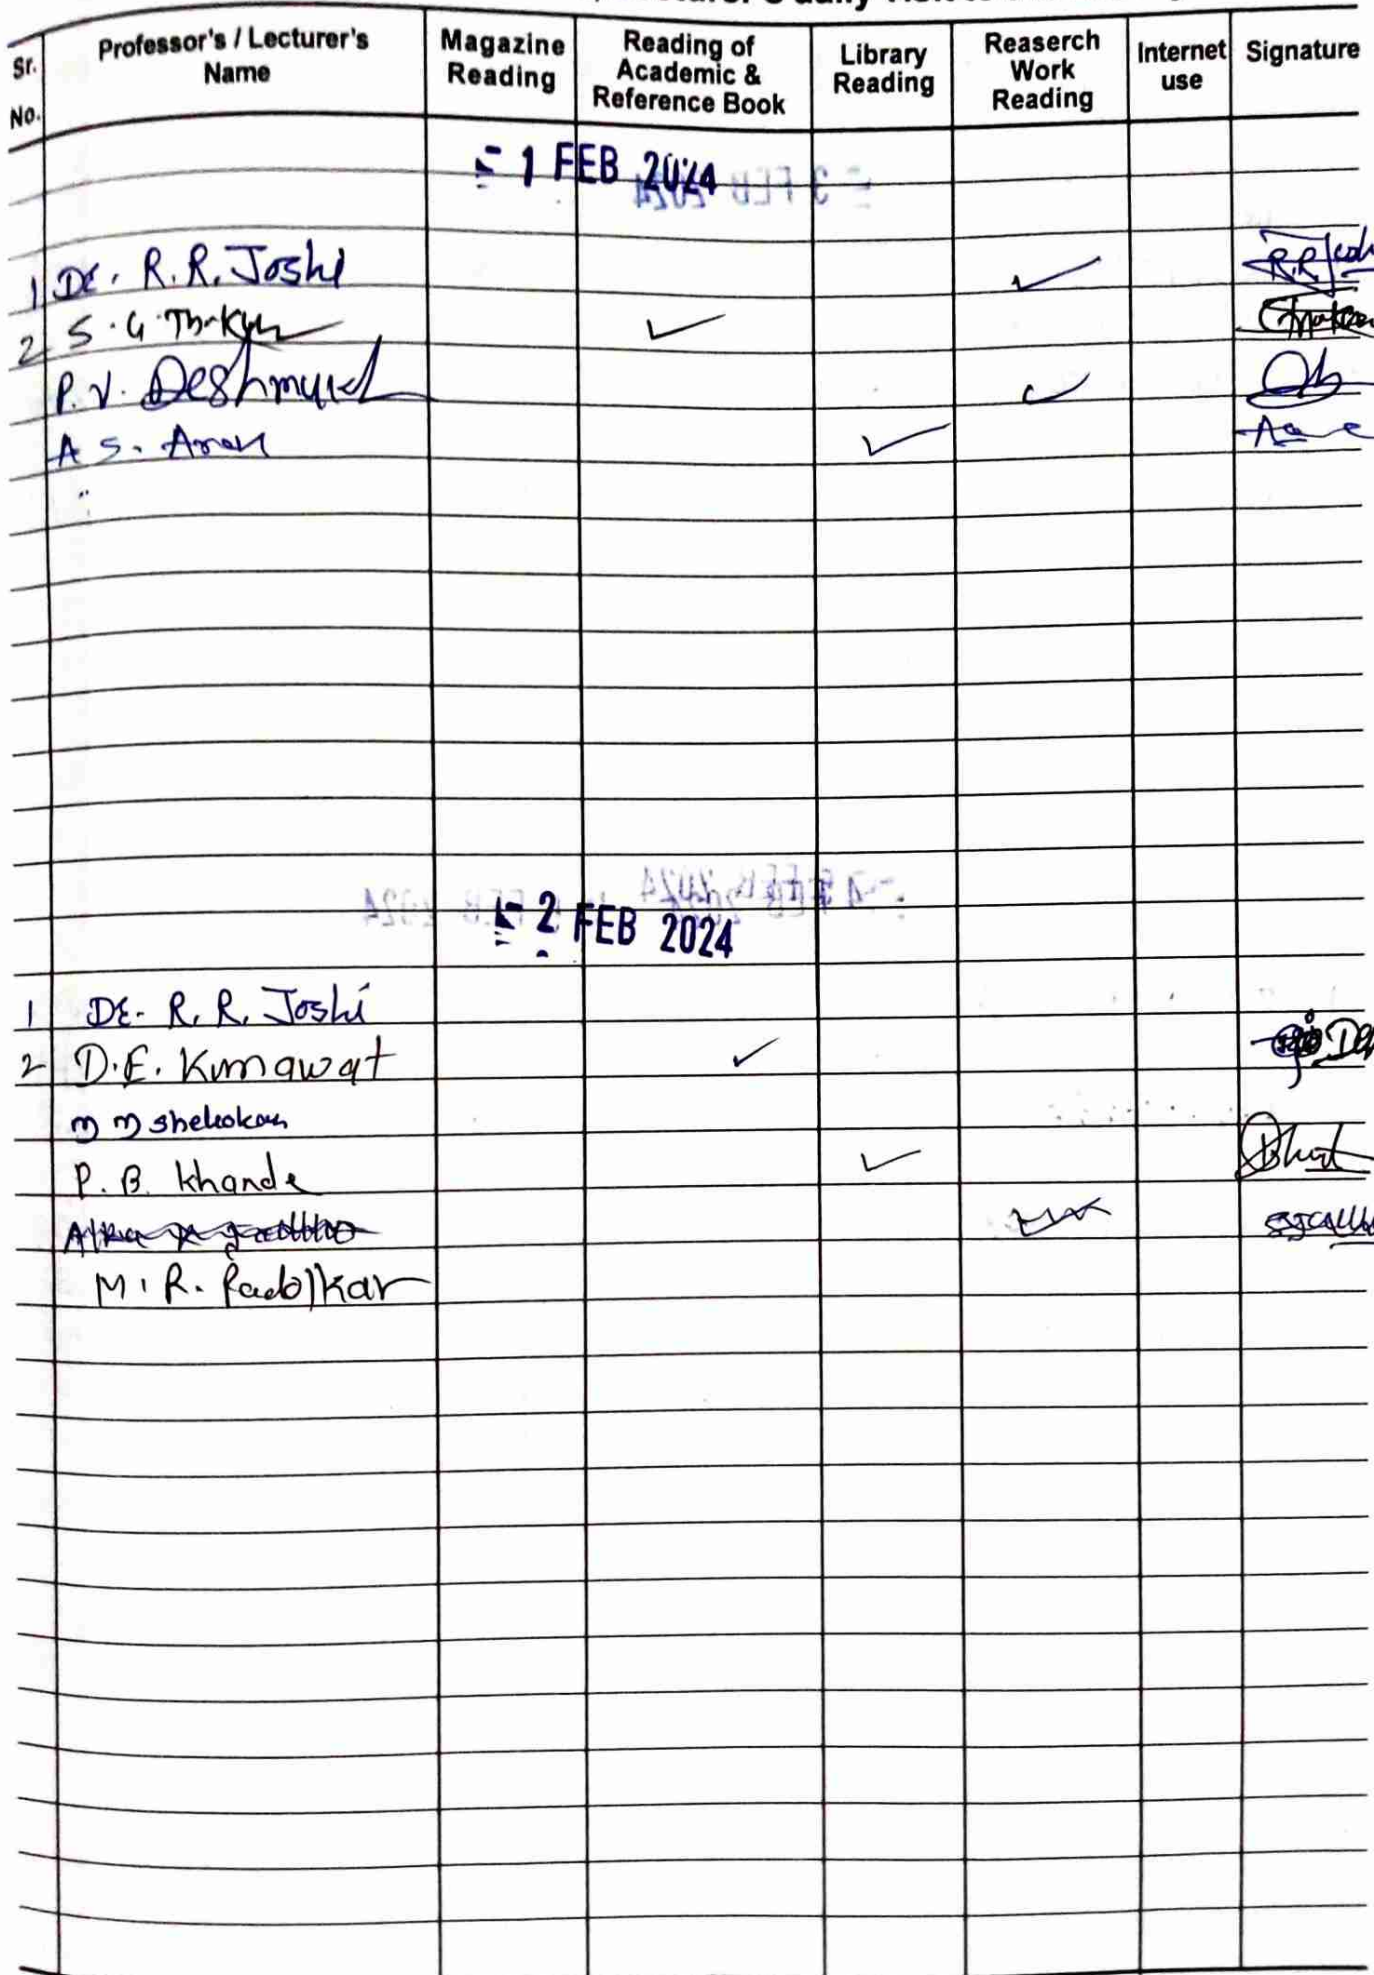 Sr. No. Professor's / Lecturer's Name Magazine Reading Reading of Academic & Reference Book Library Reading Reaserch Work Reading Internet use Signature
1 FEB 2024
1 Dr. R. R. Joshi ✓
2 S. G. Thakur ✓
P. V. Deshmukh ✓
A S. ✓
2 FEB 2024
1 Dr. R. R. Joshi
2 D. E. Kumawat ✓
m m shelokar
P. B. Khande ✓
M. R. Padolkar